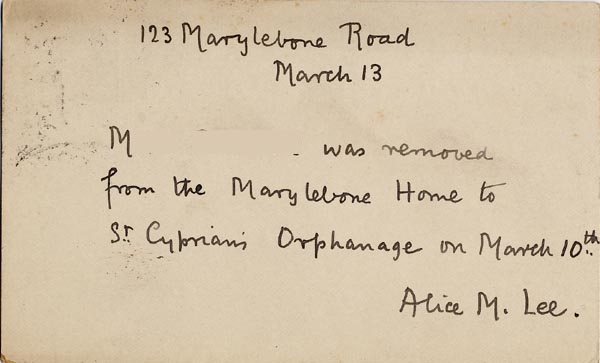 123 Marylebone Road
March 13
M . was removed
from the Marylebone Home to
St. Cyprian's Orphanage on March 10th.
Alice M. Lee.